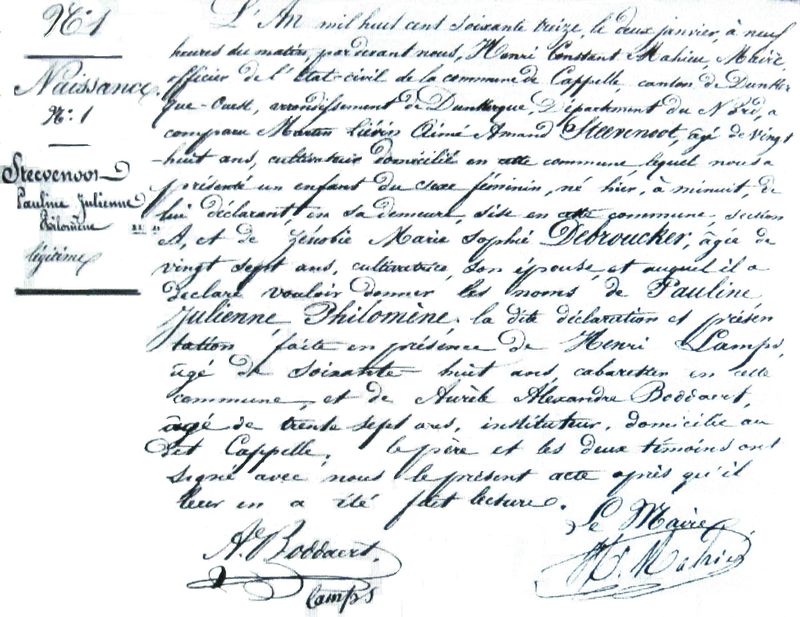 N°. 1
Naissance
N°. 1
Steevenoot
Pauline Julienne
Philomène
légitime
L'An mil huit cent soixante treize, le deux janvier, à neuf
heures du matin, pardevant nous, Henri Constant Mahieu, Maire,
officier de l'état-civil de la commune de Cappelle, canton de Dunker
que-Ouest, arrondissement de Dunkerque, Département du Nord, a
comparu Martin Liévin Aimé Amand Steevenoot, âgé de vingt
-huit ans, cultivateur domicilié en cette commune, lequel nous a
présenté un enfant du sexe féminin, né hier, à minuit, de
lui déclarant en sa demeure, sise en cette commune, section
A, et de Zénobie Marie Sophie Debroucker, âgée de
vingt sept ans, cultivatrice, son épouse, et auquel il a
déclaré vouloir donner les noms de Pauline,
Julienne, Philomène, la dite déclaration et présen
tation, faite en présence de Henri Lamps,
âgé de soixante huit ans, cabaretier en cette
commune, et de Aurèle Alexandre Boddaert,
âgé de trente sept ans, instituteur, domicilié au
dit Cappelle, le père et les deux témoins ont
signé avec nous le présent acte après qu'il
leur en a été fait lecture.
Le Maire,
A. Boddaert
Lamps
H. Mahieu